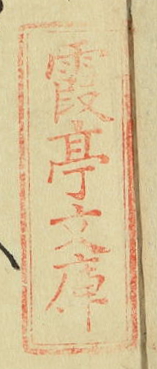 霞亭文庫